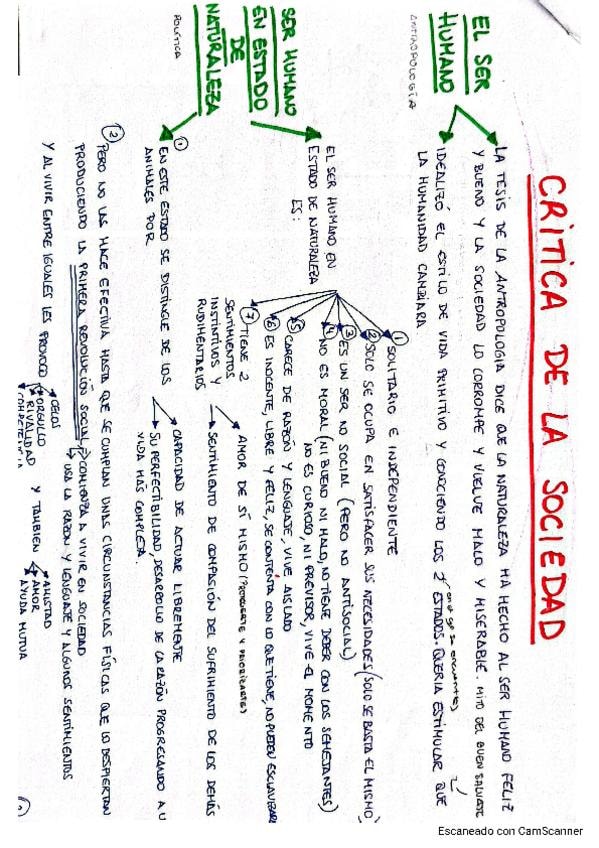 CRITICA DE LA SOCIEDAD
EL SER
HUMANO
ANTROPOLOGÍA
LA TESIS DE LA ANTROPOLOGIA DICE QUE LA NATURALEZA HA HECHO AL SER HUMANO FELIZ
Y BUENO Y LA SOCIEDAD LO CORROMPE Y VUELVE MALO Y MISERABLE. MITO DEL BUEN SALVAJE
IDEALIZÓ EL ESTILO DE VIDA PRIMITIVO Y CONOCIENDO LOS 2 ESTADOS. QUERIA ESTIMULAR QUE
LA HUMANIDAD CAMBIARA
SER HUMANO
EN ESTADO
DE
NATURALEZA
POLÍTICA
EL SER HUMANO EN
ESTADO DE NATURALEZA
ES:
1 SOLITARIO E INDEPENDIENTE
2 SOLO SE OCUPA EN SATISFACER SUS NECESIDADES (SOLO SE BASTA EL MISMO)
3 ES UN SER NO SOCIAL (PERO NO ANTISOCIAL)
4 NO ES MORAL (NI BUENO NI MALO, NO TIENE DEBER CON LOS SEMEJANTES)
NO ES CURIOSO, NI PREVISOR, VIVE EL MOMENTO
5 CARECE DE RAZÓN Y LENGUAJE, VIVE AISLADO
6 ES INOCENTE, LIBRE Y FELIZ, SE CONTENTA CON LO QUE TIENE, NO PUEDEN ESCLAVIZAR
7 TIENE 2
SENTIMIENTOS
INSTINTIVOS Y
RUDIMENTARIOS
AMOR DE SÍ MISMO
SENTIMIENTO DE COMPASIÓN DEL SUFRIMIENTO DE LOS DEMÁS
1
EN ESTE ESTADO SE DISTINGUE DE LOS
ANIMALES POR
CAPACIDAD DE ACTUAR LIBREMENTE
SU PERFECTIBILIDAD, DESARROLLO DE LA RAZÓN PROGRESANDO A U
VIDA MÁS COMPLEJA.
2 PERO NO LAS HACE EFECTIVA HASTA QUE SE CUMPLAN UNAS CIRCUNSTANCIAS FÍSICAS QUE LO DESPIERTAN
PRODUCIENDO LA PRIMERA REVOLUCIÓN SOCIAL
COMIENZA A VIVIR EN SOCIEDAD
USA LA RAZON Y LENGUAJE Y ALGUNOS SENTIMIENTOS
Y AL VIVIR ENTRE IGUALES LES PROVOCO
CELOS
ORGULLO
RIVALIDAD
COMPETENCIA
Y TAMBIEN
AMISTAD
AMOR
AYUDA MUTUA
Escaneado con CamScanner